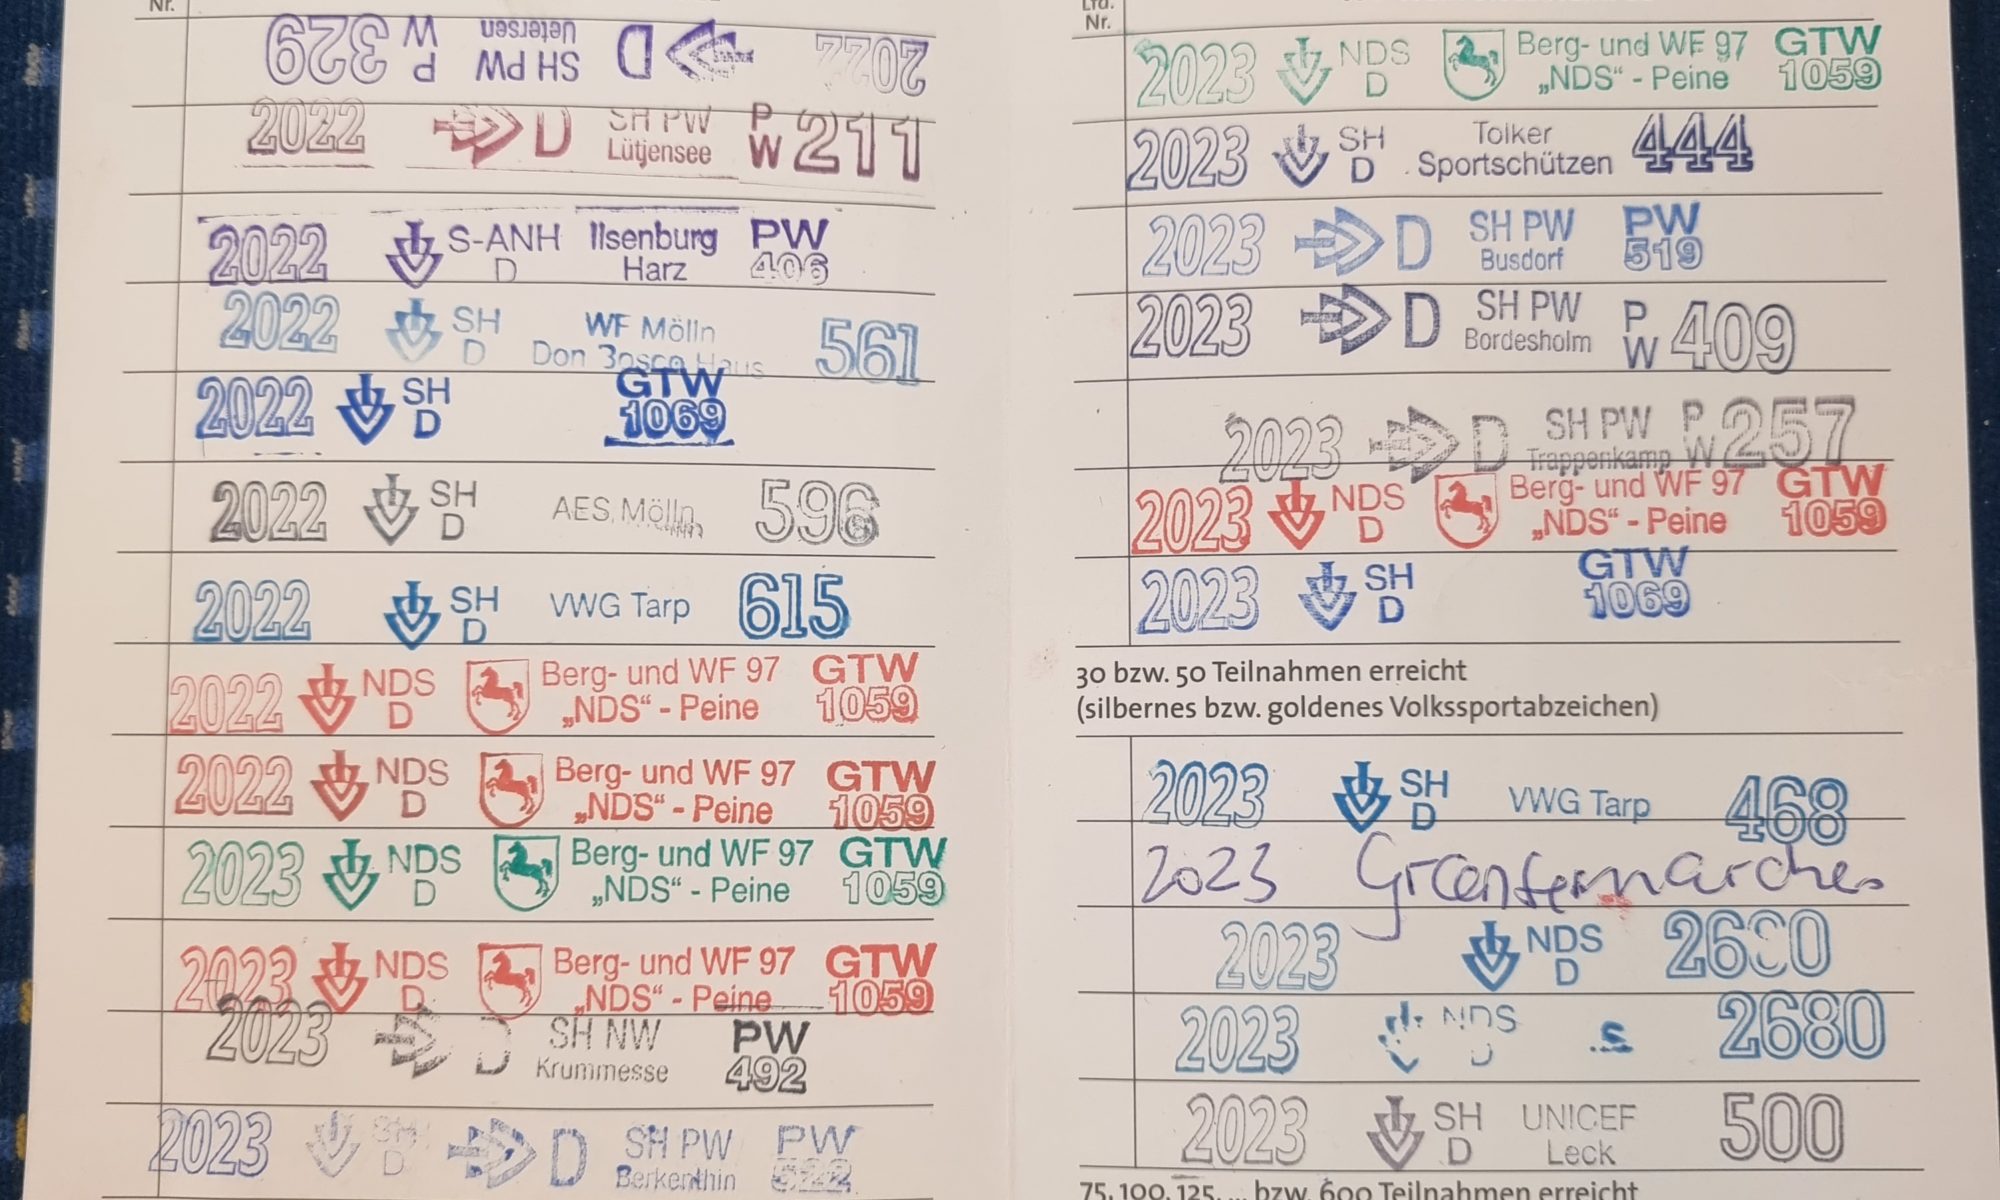 Nr.
2022 D SH PW Uetersen PW 329
2022 D SH PW Lütjensee PW 211
2022 S-ANH D Ilsenburg Harz PW 406
2022 SH D WF Mölln Don Bosco Haus 561
2022 SH D GTW 1069
2022 SH D AES Mölln 596
2022 SH D VWG Tarp 615
2022 NDS D Berg- und WF 97 „NDS“ - Peine GTW 1059
2022 NDS D Berg- und WF 97 „NDS“ - Peine GTW 1059
2023 NDS D Berg- und WF 97 „NDS“ - Peine GTW 1059
2023 NDS D Berg- und WF 97 „NDS“ - Peine GTW 1059
2023 D SH NW Krummesse PW 492
2023 SH D D SH PW Berkenthin PW 522
Lfd.
Nr.
2023 NDS D Berg- und WF 97 „NDS“ - Peine GTW 1059
2023 SH D Tolker Sportschützen 444
2023 D SH PW Busdorf PW 519
2023 D SH PW Bordesholm PW 409
2023 D SH PW Trappenkamp PW 257
2023 NDS D Berg- und WF 97 „NDS“ - Peine GTW 1059
2023 SH D GTW 1069
30 bzw. 50 Teilnahmen erreicht
(silbernes bzw. goldenes Volkssportabzeichen)
2023 SH D VWG Tarp 468
2023
2023 NDS D 2680
2023 NDS D 2680
2023 SH D UNICEF Leck 500
75, 100, 125, ... bzw. 600 Teilnahmen erreicht